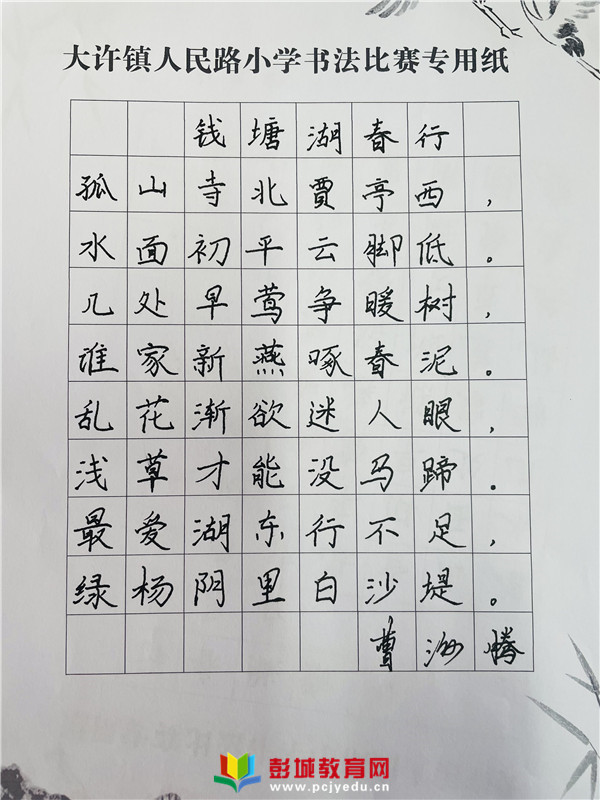 大许镇人民路小学书法比赛专用纸
钱塘湖春行
孤山寺北贾亭西，
水面初平云脚低。
几处早莺争暖树，
谁家新燕啄春泥。
乱花渐欲迷人眼，
浅草才能没马蹄。
最爱湖东行不足，
绿杨阴里白沙堤。
曹
彭城教育网
www.pcjyedu.cn